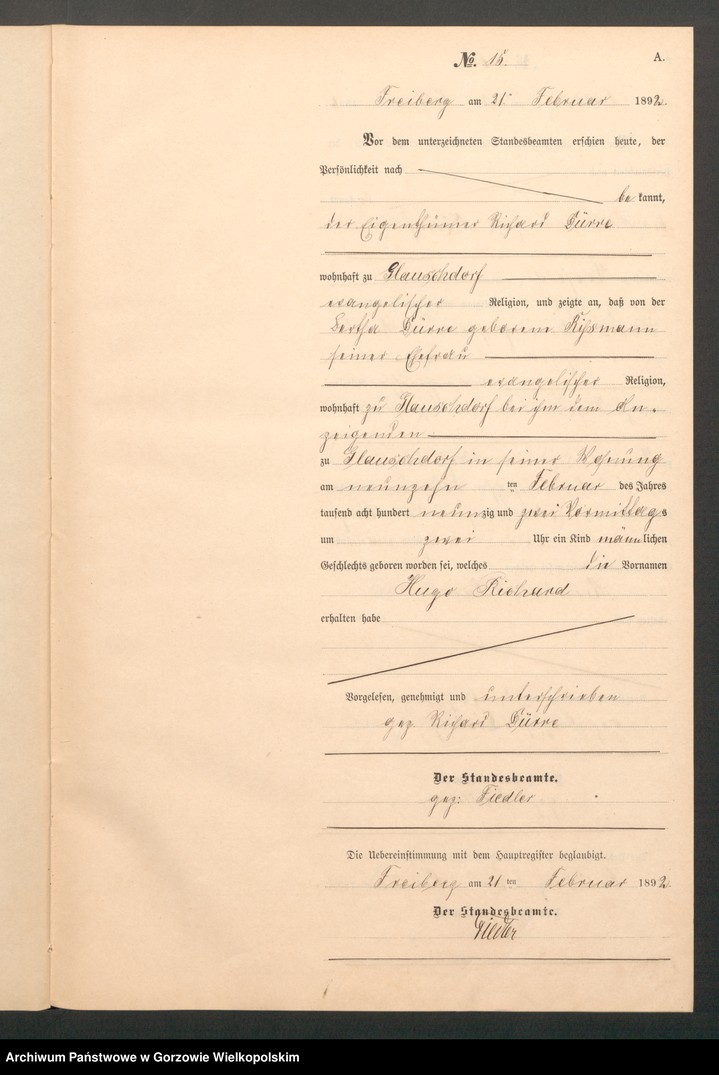 No. 15.
A.
Freiberg am 21 Februar 1892.
Vor dem unterzeichneten Standesbeamten erschien heute, der
Persönlichkeit nach
be kannt,
der Eigenthümer Richard Dürre
wohnhaft zu Glauschdorf
evangelischer Religion, und zeigte an, daß von der
Bertha Dürre geborene Rißmann
seiner Ehefrau
evangelischer Religion,
wohnhaft zu Glauschdorf bei ihm dem An-
zeigenden
zu Glauschdorf in seiner Wohnung
am neunzehn ten Februar des Jahres
tausend acht hundert neunzig und zwei Vormittags
um zwei Uhr ein Kind männlichen
Geschlechts geboren worden sei, welches die Vornamen
Hugo Richard
erhalten habe
Vorgelesen, genehmigt und unterschrieben
gez. Richard Dürre
Der Standesbeamte.
gez: Fiedler
Die Uebereinstimmung mit dem Hauptregister beglaubigt.
Freiberg am 21 ten Februar 1892.
Der Standesbeamte.
Fiedler
Archiwum Państwowe w Gorzowie Wielkopolskim